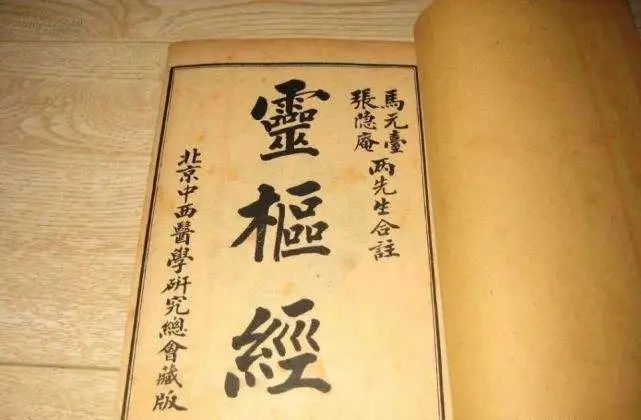 馬元臺
張隐庵
兩先生合註
靈樞經
北京中西醫學研究總會藏版